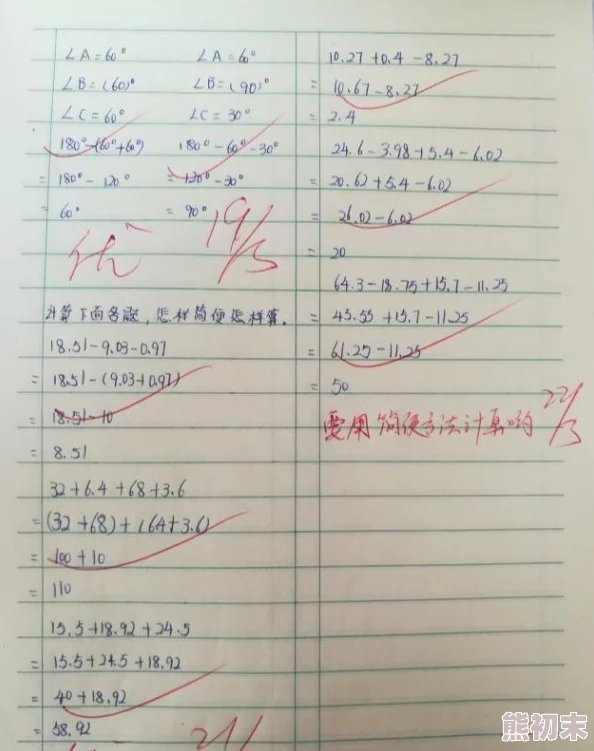 ∠A=60° ∠A=60°
∠B=(60)° ∠B=(90)°
∠C=60° ∠C=30°
180°-(60°+60) 180°-60°-30°
=180°-120° =120°-30°
=60° =90°
优
19/3
计算下面各题，怎样简便怎样算.
18.51-9.03-0.97
=18.51-(9.03+0.97)
=18.51-10
=8.51
32+6.4+68+3.6
=(32+68)+(6.4+3.6)
=100+10
=110
15.5+18.92+24.5
=15.5+24.5+18.92
=40+18.92
=58.92
21/3
10.27+0.4-8.27
=10.67-8.27
=2.4
24.6-3.98+5.4-6.02
=20.62+5.4-6.02
=26.02-6.02
=20
64.3-18.75+15.7-11.25
=45.55+15.7-11.25
=61.25-11.25
=50
要用简便方法计算哟
22/3
熊初末